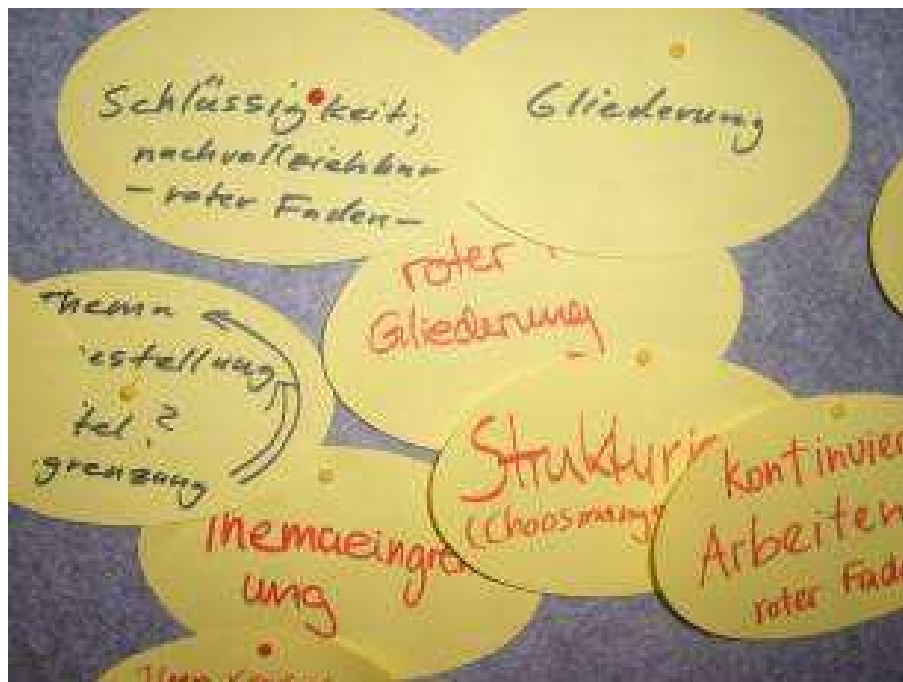 Schlüssigkeit;
nachvollziehbar
- roter Faden -
Gliederung
roter
Gliederung
Thema
estellung
tel?
grenzung
Strukturi
(Choosmang
kontinuie
Arbeiten
roter Fade
Themaeingre
ung